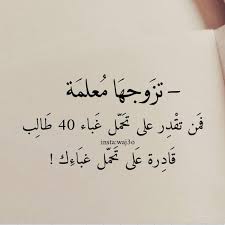 – تزَوجهَا مُعلمَة
فمَن تقْدِر على تحَمّل غَباء 40 طَالِب
insta:waj3o
قَادِرة عَلى تَحمّل غبَاءك !